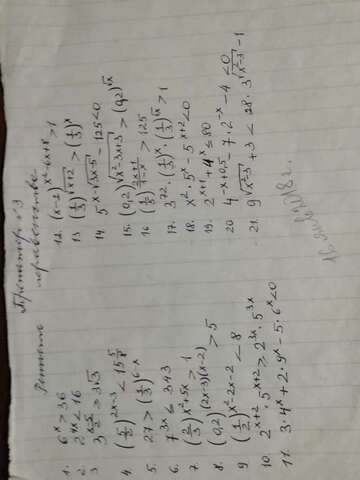 Тренажер №3
Решить неравенства
1. 6^x > 36
2. 2^{4x} < 16
3 3^{\frac{x-5}{2}} > 3\sqrt{3}
4. (\frac{1}{5})^{2x-3} < 15\frac{5}{8}
5. 27 > (\frac{1}{3})^{6-x}
6. 7^{3x} ≤ 343
7. (\frac{2}{3})^{x^2+5x} > 1
8. (0,2)^{(2x-3)(x-2)} > 5
9 (\frac{1}{2})^{x^2-2x-2} < 8
10. 2^{x+2} · 5^{x+2} > 2^{3x} · 5^{3x}
11. 3·4^x + 2·9^x - 5·6^x < 0
12. (x-2)^{x^2-6x+8} > 1
13 (\frac{1}{3})^{\sqrt{x+2}} > (\frac{1}{3})^x
14. 5^{x-\sqrt{3x-5}} - 125 < 0
15. (0,2)^{\sqrt{x^2-3x+3}} > (0,2)^{\sqrt{x}}
16 (\frac{1}{5})^{\frac{2x+1}{1-x}} > 125
17. 3^{72} · (\frac{1}{3})^x · (\frac{1}{3})^{\sqrt{x}} > 1
18. x^2 · 5^x - 5^{x+2} < 0
19. 2^{x+1} + 4^x ≤ 80
20 4^{-x+0,5} - 7·2^{-x} - 4 < 0
21. 9^{\sqrt{x^2-3}} + 3 < 28·3^{\sqrt{x^2-3}-1}